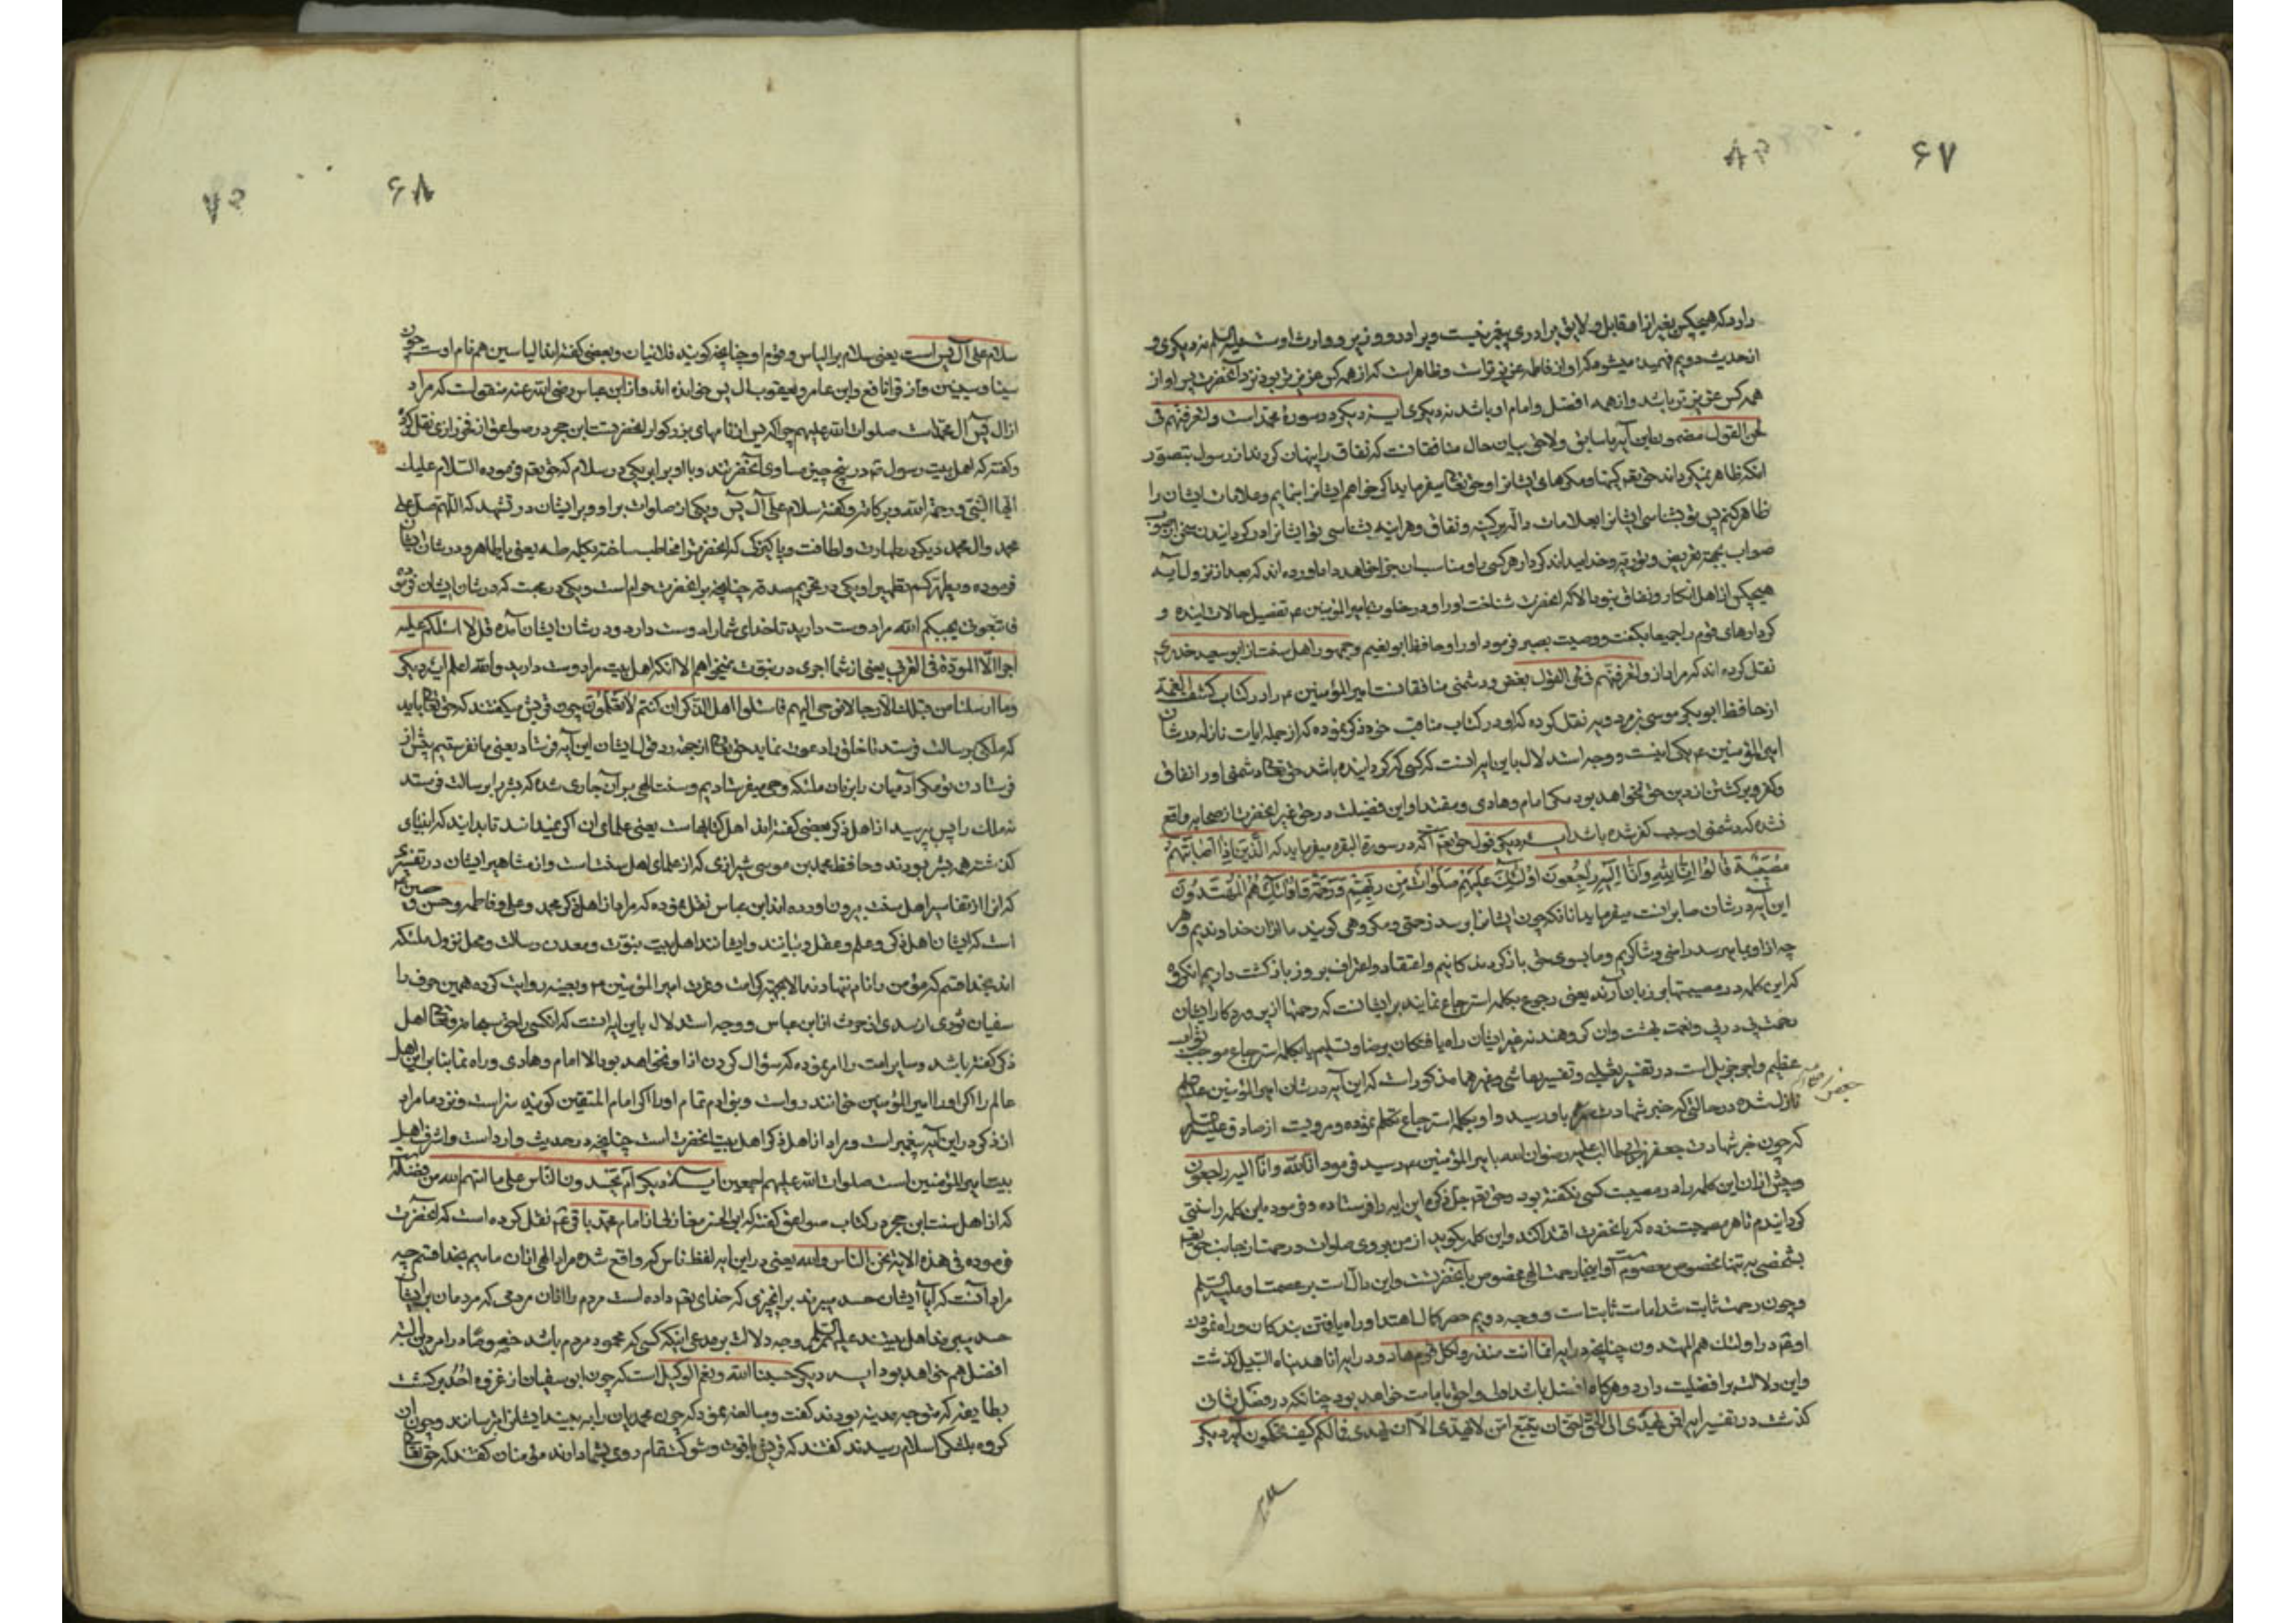 ۶۷
دارد که هیچکس بغیر از او مقابل و لایق برادری پیغمبر نیست و برادر و وزیر و وارث اوست علیه السلم نه دیکری و
از حدیث دویم فهمیده میشود که او از فاطمه عزیزتر است و ظاهر است که از همه کس عزیزتر بود نزد آنحضرت پس او از
همه کس عزیزتر باشد و از همه افضل و امام او باشد نه دیکری ایـه دیکر در سورهٔ محمد است و لتعرفنهم فی
لحن القول مضمون این آیه با سابق و لاحق بیان حال منافقانست که نفاق را پنهان کردند از رسول بتصور
انکه ظاهر نمیکرداند حق تعم کینها و مکرهای ایشانرا و حق تعالی میفرماید اکر خواهم ایشانرا بنمایم و علامات ایشان را
ظاهر کنم پس تو بشناسی ایشانرا بعلامات دالّه بر کینه و نفاق و هراینه بشناسی تو ایشانرا در کردانیدن سخن از صوب
صواب بجهة تعریض و توریه و خدا میداند کردار هر کسی را و مناسب ان جزا خواهد داد اما اورده اند که بعد از نزول آیه
هیچکس از اهل انکار و نفاق نبود الا که آنحضرت شناخت او را و در خلوت با میر المؤمنین ع تفصیل حالات اینده و
کردارهای قوم را جمیعا بکفت و وصیت بصبر فرمود او را و حافظ ابو نعیم و جمهور اهل سنت از ابو سعید خدری
نقل کرده اند که مراد از و لتعرفنهم فی لحن القول بغض و دشمنی منافقانست با میر المؤمنین ع را در کتاب کشف الغمة
از حافظ ابو بکر موسی بن مردویه نقل کرده که او در کتاب مناقب خود ذکر نموده که از جمله ایات نازله در شان
امیر المؤمنین ع یکی اینست و وجه استدلال باین ایه انست که کسی که کردانیده باشد حق تعالی دشمنی او را نفاق
و کفر و برکشتن از دین حق نخواهد بود مکر امام و هادی و مقتدا و این فضیلت در حق غیر آنحضرت از صحابه واقع
نشده که دشمنی او سبب کفر شده باشد ایـه دیکر قول حق تعم آنکه در سورة البقره میفرماید که الَّذِینَ اِذا اَصابَتْهُمْ
مُصِیبَةٌ قالُوا اِنّا لِلّهِ وَ اِنّا اِلَیْهِ راجِعُونَ اُولئِکَ عَلَیْهِمْ صَلَواتٌ مِنْ رَبِّهِمْ وَ رَحْمَةٌ وَ اُولئِکَ هُمُ الْمُهْتَدُونَ
این آیه در شان صابرانست میفرماید انانکه چون ایشانرا برسد زحمتی و مکروهی کویند ما از ان خداوندیم و هر
چه از او بما برسد راضی و شاکریم و ما بسوی حق باز کردندکانیم و اعتقاد و اعتراف بروز بازکشت داریم انکروه
که این کلمه در مصیبتها بر زبان آرند یعنی رجوع بکلمه استرجاع نمایند بر ایشانست که رحمتها از پروردکار ایشان
رحمت پی در پی و نعمت بهشت وان کروهند نه غیر ایشان راه یافتکان برضا و تسلیم یا بکلمه استرجاع موجب ثواب
عظیم و اجر جزیل است در تفسیر ثعلبی و تفسیر هاشمی و غیرهما مذکور است که این آیه در شان امیر المؤمنین علیه السلم
نازل شده در حالتی که خبر شهادت باو رسید و او بکلمه استرجاع تکلم نموده و مرویست از صادق علیه السلم
که چون خبر شهادت جعفر بن ابیطالب علیه رضوان الله با میر المؤمنین ع رسید فرمود انا لله و انا الیه راجعون
و پیش از ان این کلمه را در مصیبت کسی نکفته بود و حق تعم جل ذکره این ایه را فرستاده و فرمود این کلمه را سنتی
کردانیدم تا هر مصیبت زده که با آنحضرت اقتدا کند و این کلمه بکوید از من بر وی صلوات و رحمت از جانب حق تعم
بشخصی به تنها مخصوص معصوم است و اینجا رحمت الهی مخصوص بآنحضرتست و این دالّ است بر عصمت او علیه السلم
و چون رحمت ثابت شد امامت ثابتست و وجه دویم حصر کمال اهتدا و راه یافتن بندکان و راه نمودن
اوقه در اولئک هم المهتدون چنانچه در ایه انما انت منذر و لکل قوم هاد و در ایه انا هدیناه السبیل کذشت
و این دلالت بر افضلیت دارد و هرکاه افضل باشد اولی و احق بامامت خواهد بود چنانکه در فصل ثانی
کذشت در تفسیر ایه افمن یهدی الی الحق احق ان یتبع امّن لا یهدی الا ان یهدی فما لکم کیف تحکمون آیه دیکر
۶۸
سلام علی آل یس است یعنی سلام بر الیاس و قوم او چنانچه کویند فلانیان و بعضی کفته اند الیاسین هم نام اوست چون
سینا و سینین و از قرا نافع و ابن عامر و یعقوب ال یس خوانده اند و از ابن عباس رضی الله عنه منقولست که مراد
از ال یس آل محمد است صلوات الله علیهم چرا که یس از نامهای بزرکوار آنحضرتست ابن حجر در صواعق از فخر رازی نقل کرده
و کفته که اهل بیت رسول ص در پنج چیز مساوی آنحضرتند و با او برابر یکی در سلام که حق تعم فرموده السلام علیک
ایها النبی و رحمة الله و برکاته و کفته سلام علی آل یس و یکی از صلوات بر او و بر ایشان در تشهد که اللهم صل علی
محمد و ال محمد دیکر در طهارت و لطافت و پاکیزکی که آنحضرت را مخاطب ساخته بکلمه طه یعنی یا طاهر و در شان ایشان
فرموده و یطهرکم تطهیرا و یکی در تحریم صدقه چنانچه بر آنحضرت حرام است و یکی در محبت که در شان ایشان فرموده
فاتبعونی یحببکم الله مرا دوست دارید تا خدای شما را دوست دارد و در شان ایشان آمده قل لا اسئلکم علیه
اجرا الّا المودّة فی القربی یعنی از شما اجری در نبوت نمیخواهم الا انکه اهل بیت مرا دوست دارید و الله اعلم ایه دیکر
و ما ارسلنا من قبلک الا رجالا نوحی الیهم فاسئلوا اهل الذکر ان کنتم لا تعلمون چون قریش میکفتند که حق تعالی باید
که ملکی برسالت فرستد تا خلق را دعوت نماید حق تعالی از جهة رد قول ایشان این آیه فرستاد یعنی ما نفرستیم پیش از
فرستادن تو مکر آدمیان را بزبان ملئکه وحی میفرستادیم و سنت الهی بر آن جاری شده که بشر را برسالت فرستد
نه ملک را پس بپرسید از اهل ذکر بعضی کفته اند اهل کتابهاست یعنی علمای ان اکر نمیدانند تا بدانید که انبیای
کذشته همه بشر بودند و حافظ محمد بن موسی شیرازی که از علمای اهل سنت است و از مشاهیر ایشان در تفسیری
که انرا از تفاسیر اهل سنت بیرون اورده از ابن عباس نقل نموده که مراد از اهل ذکر محمد و علی و فاطمه و حسن و حسین
است که ایشان اهل ذکر و علم و عقل و بیانند و ایشانند اهل بیت نبوت و معدن رسالت و محل نزول ملئکه
اند بخدا قسم که مؤمن را نام ننهادند الا بجهة کرامت و عزت امیر المؤمنین ع و بعینه روایت کرده همین حرف را
سفیان ثوری از سدی از حرث از ابن عباس و وجه استدلال باین ایه انست که انکسی را حق سبحانه و تعالی اهل
ذکر کفته باشد و سایر امت را امر نموده که سؤال کردن از او نخواهد بود الا امام و هادی و راه نما بنابر این اهل
عالم را اکر او را امیر المؤمنین خوانند رواست و بنی ادم تمام او را اکر امام المتقین کویند سزاست و نزد ما مراد
از ذکر در این آیه پیغمبر است و مراد از اهل ذکر اهل بیت آنحضرت است چنانچه در حدیث وارد است و اشرف اهل
بیت امیر المؤمنین است صلوات الله علیهم اجمعین ایـهٔ دیکر ام یحسدون الناس علی ما اتیهم الله من فضله
که از اهل سنت ابن حجر در کتاب صواعق کفته که ابو الحسن مغازلی از امام محمد باقر ع نقل کرده است که آنحضرت
فرموده فی هذه الایة نحن الناس والله یعنی در این ایه لفظ ناس که واقع شده مراد الهی از ان ماییم بخدا قسم چه
مراد آنست که آیا ایشان حسد میبرند بر انچیزی که خدای تعم داده است مردم را از ان مردمی که مردمان بر ایشان
حسد میبرند اهل بیتند علیهم السلم وجه دلالت بر مدعی اینکه کسی که محسود مردم باشد خصوصا در امر دین البته
افضل هم خواهد بود ایـه دیکر حسبنا الله و نعم الوکیل است که چون ابو سفیان از غزوه اُحُد برکشت
بطایفه که متوجه مدینه بودند کفت و مبالغه نمود که چون محمدیان را به بینید ایشانرا بترسانید و چون ان
کروه بلشکر اسلام رسیدند کفتند که قریش با قوت و شوکت تمام روی بشما دارند مؤمنان کفتند که حق تعالی